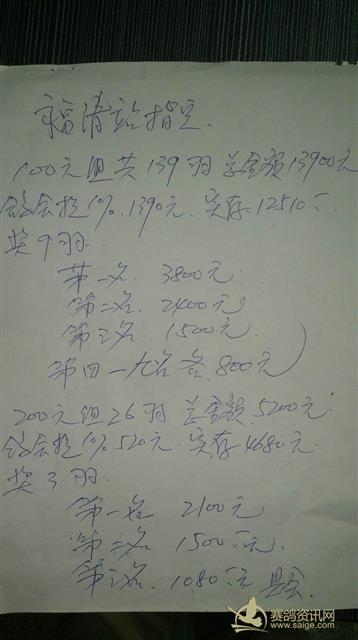 福清站指定.
100元组共139羽 总金额13900元
鸽会提10%.1390元. 实存12510元
奖9羽.
第一名 3800元
第二名 2400元
第三名 1500元
第四一九名各800元
200元组26羽 总金额.5200元.
鸽会提10%520元. 实存4680元.
奖3羽.
第一名 2100元
第二名 1500元.
第三名. 1080元
赛鸽资讯网
www.saige.com